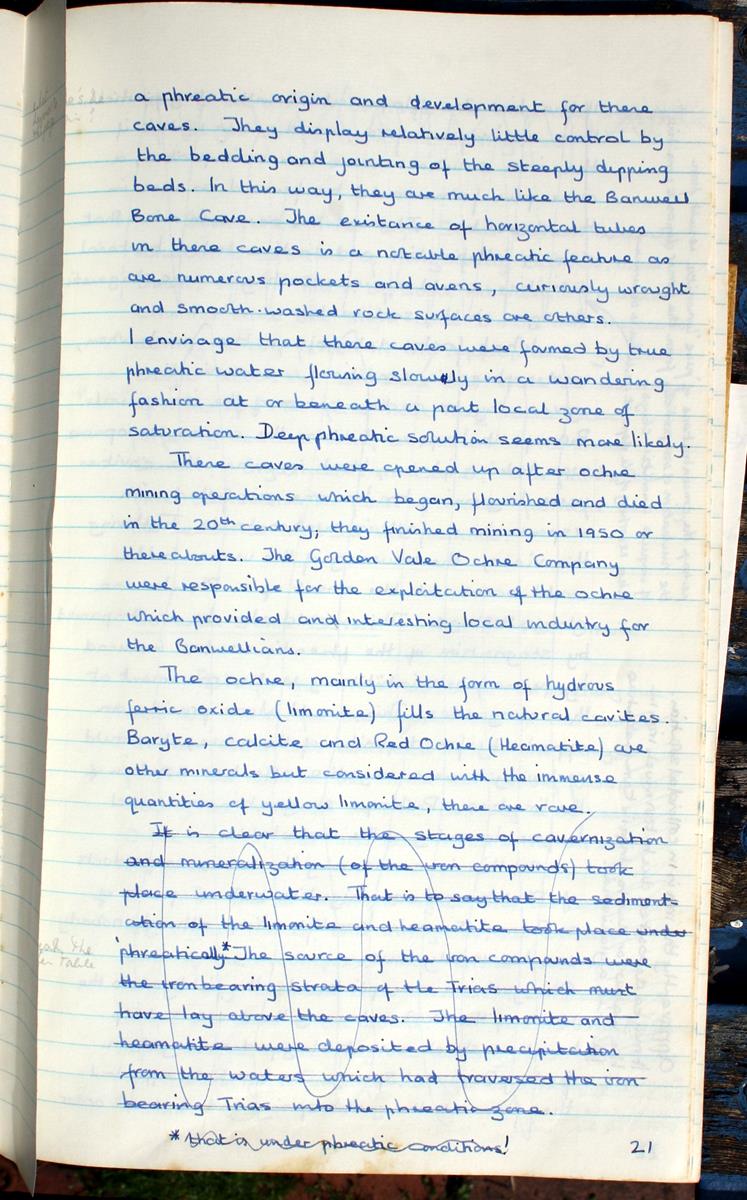 a phreatic origin and development for these
caves. They display relatively little control by
the bedding and jointing of the steeply dipping
beds. In this way, they are much like the Banwell
Bone Cave. The existance of horizontal tubes
in these caves is a notable phreatic feature as
are numerous pockets and avens, curiously wrought
and smooth-washed rock surfaces are others.
I envisage that these caves were formed by true
phreatic water flowing slowly in a wandering
fashion at or beneath a past local zone of
saturation. Deep phreatic solution seems more likely.
These caves were opened up after ochre
mining operations which began, flourished and died
in the 20th century; they finished mining in 1950 or
thereabouts. The Golden Vale Ochre Company
were responsible for the exploitation of the ochre
which provided and interesting local industry for
the Banwellians.
The ochre, mainly in the form of hydrous
ferric oxide (limonite) fills the natural cavites.
Baryte, calcite and Red Ochre (Heamatite) are
other minerals but considered with the immense
quantities of yellow limonite, these are rare.
It is clear that the stages of cavernization
and mineralization (of the iron compounds) took
place underwater. That is to say that the sediment-
ation of the limonite and heamatite took place under
'phreatically'* The source of the iron compounds were
the iron bearing strata of the Trias which must
have lay above the caves. The limonite and
heamatite were deposited by precipitation
from the waters which had traversed the iron
bearing Trias into the phreatic zone.
* that is under phreatic conditions!
21